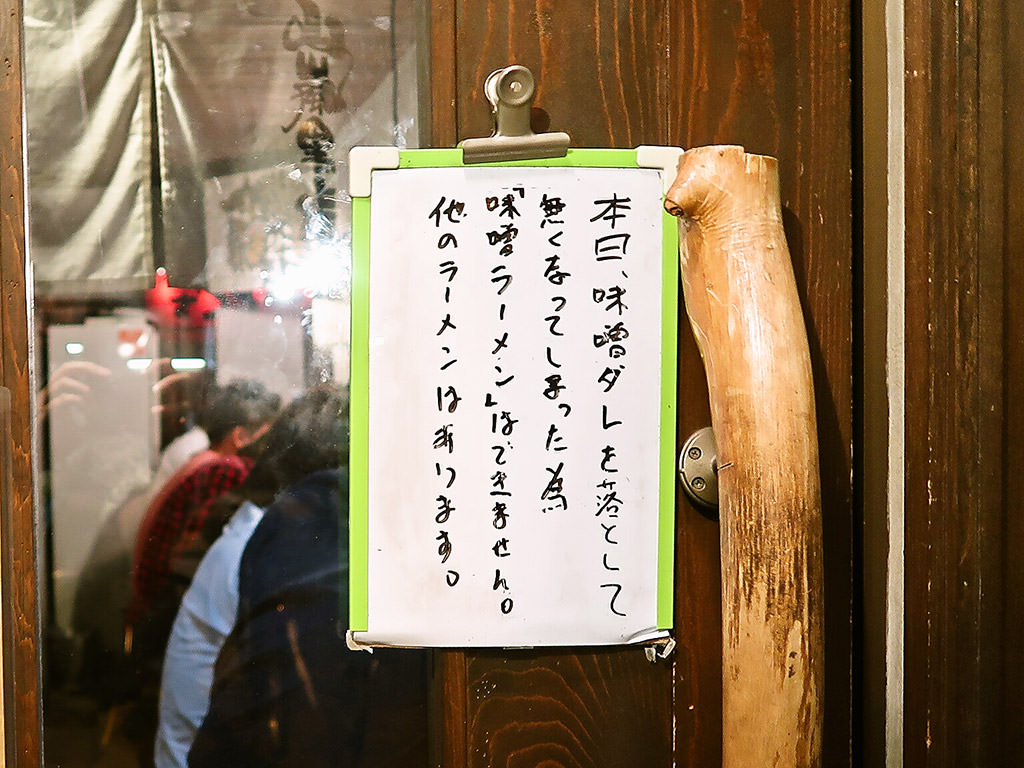 本日、味噌ダレを落として
無くなってしまった為
「味噌ラーメン」はできません。
他のラーメンは有ります。